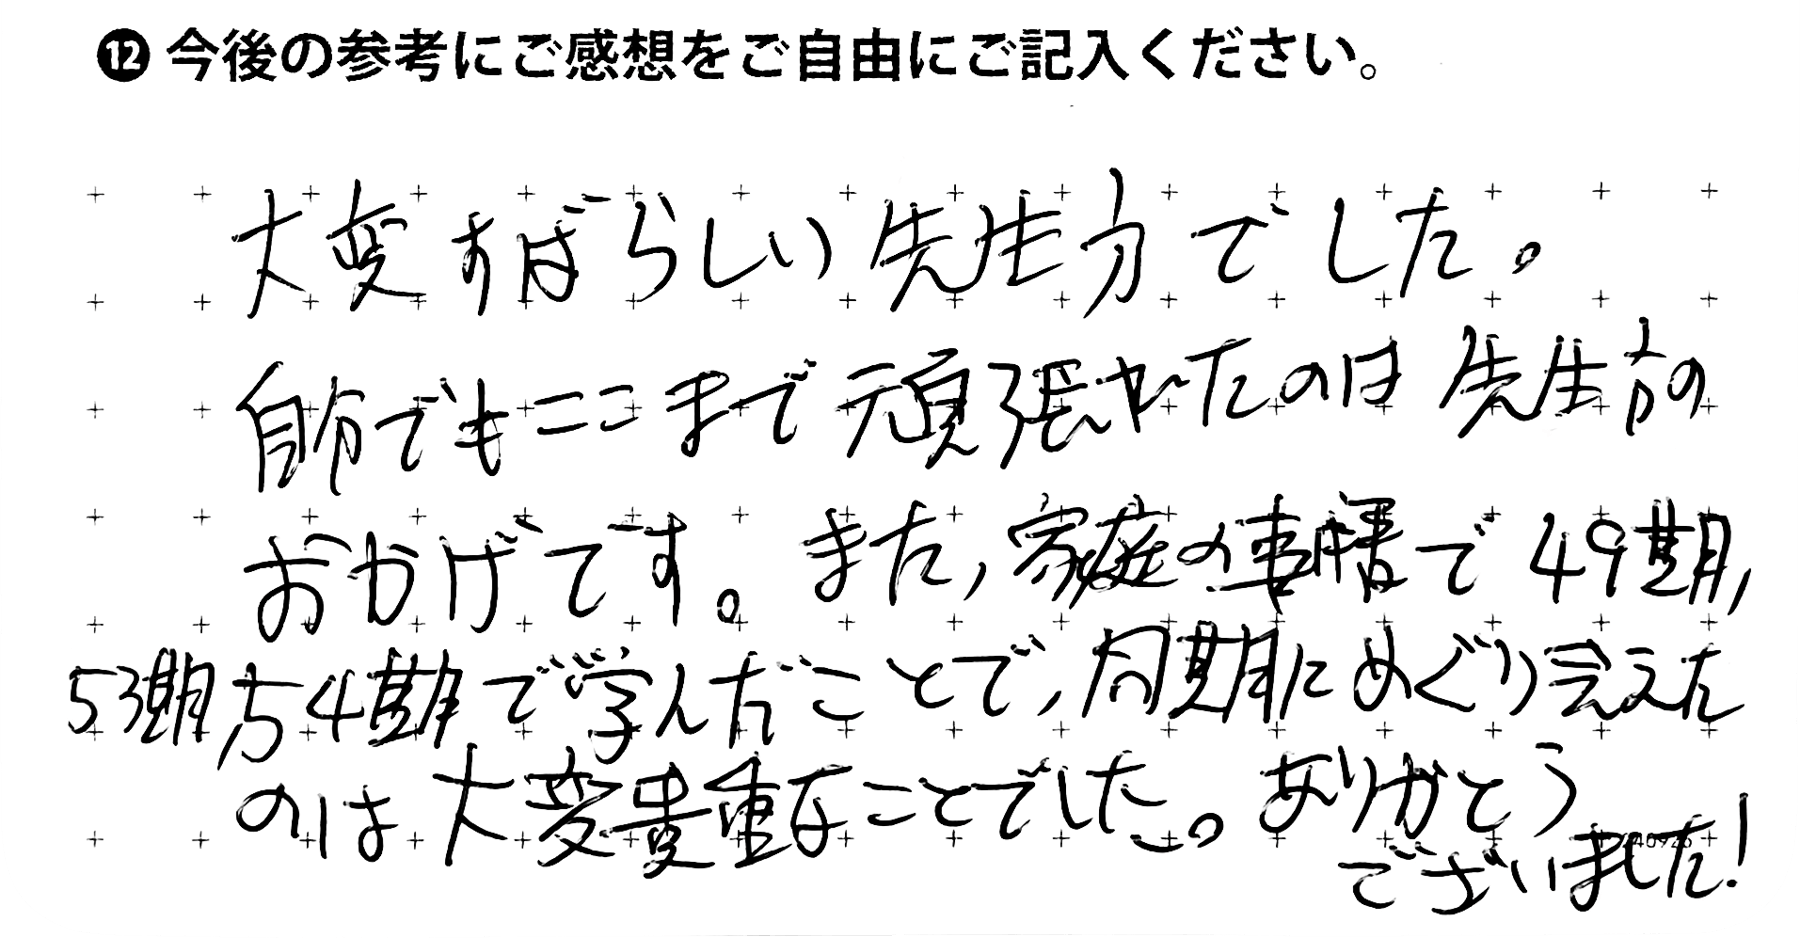 ⓬ 今後の参考にご感想をご自由にご記入ください。
大変すばらしい先生方でした。
自分でもここまで頑張れたのは先生方の
おかげです。また、家庭の事情で49期、
53期、54期で学んだことで、同期にめぐり会えた
のは大変貴重なことでした。ありがとう
240926
ございました!